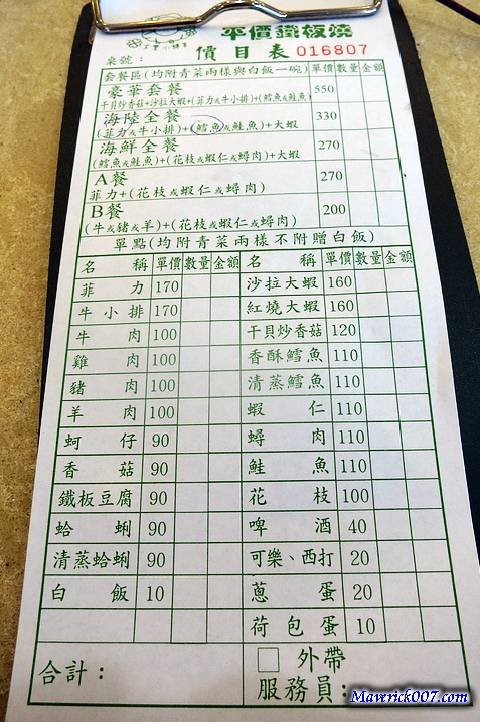 平價鐵板燒
桌號： 價目表 016807
套餐區(均附青菜兩樣與白飯一碗) 單價 數量 金額
豪華套餐 550
干貝炒香菇+沙拉大蝦+(菲力或牛小排)+(鱈魚或鮭魚)
海陸全餐 330
(菲力或牛小排)+(鱈魚或鮭魚)+大蝦
海鮮全餐 270
(鱈魚或鮭魚)+(花枝或蝦仁或蟳肉)+大蝦
A餐 270
菲力+(花枝或蝦仁或蟳肉)
B餐 200
(牛或豬或羊)+(花枝或蝦仁或蟳肉)
單點(均附青菜兩樣不附贈白飯)
名稱 單價 數量 金額 名稱 單價 數量 金額
菲力 170 沙拉大蝦 160
牛小排 170 紅燒大蝦 160
牛肉 100 干貝炒香菇 120
雞肉 100 香酥鱈魚 110
豬肉 100 清蒸鱈魚 110
羊肉 100 蝦仁 110
蚵仔 90 蟳肉 110
香菇 90 鮭魚 110
鐵板豆腐 90 花枝 100
蛤蜊 90 啤酒 40
清蒸蛤蜊 90 可樂、西打 20
白飯 10 蔥蛋 20
荷包蛋 10
合計： □ 外帶
服務員：
Maverick007.com